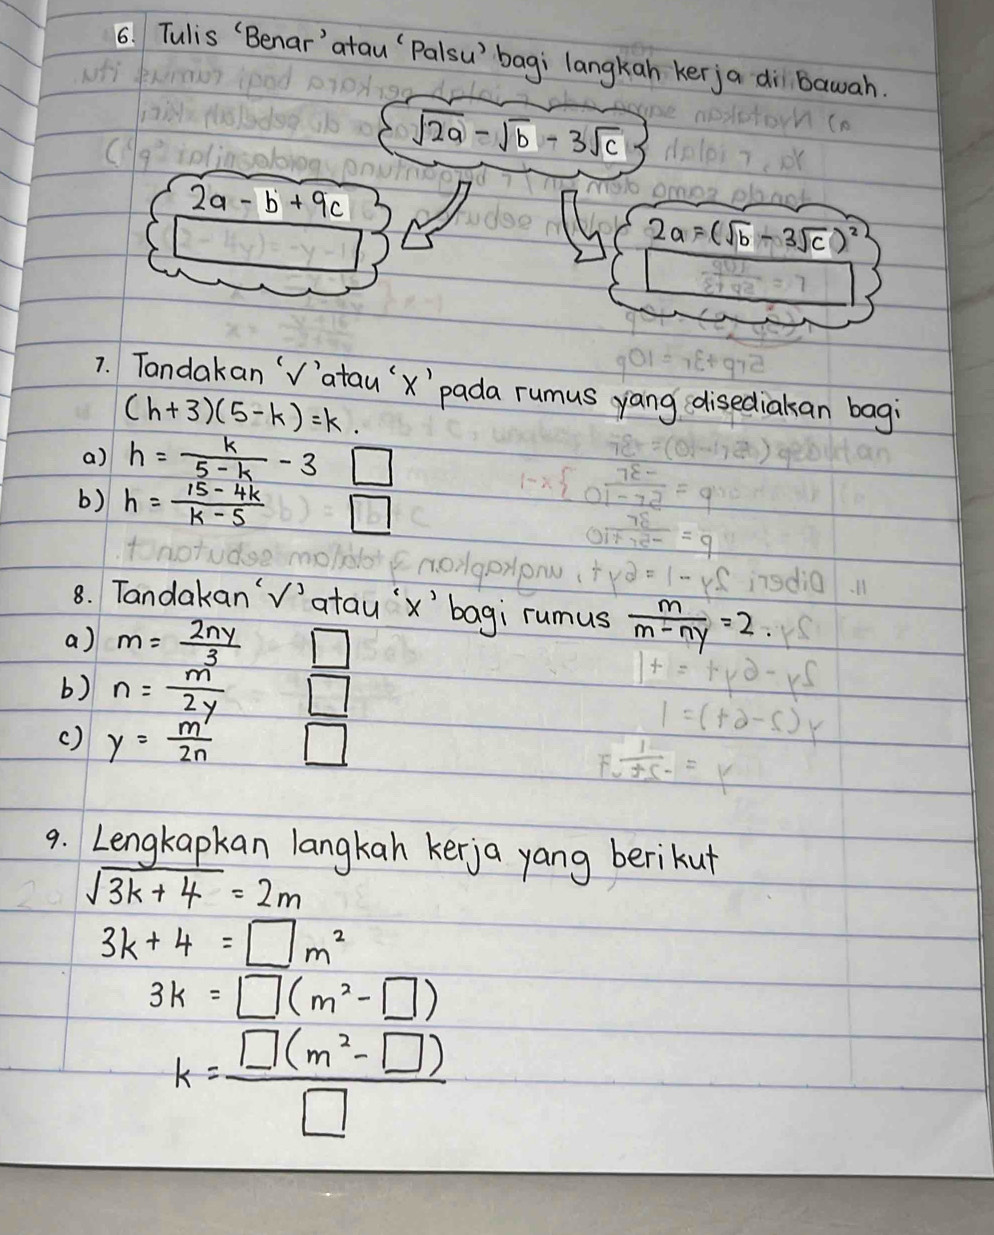 6. Tulis 'Benar' atau 'Palsu' bagi langkah kerja di bawah.
√2a = √b - 3√c
2a - b + 9c
2a = (√b - 3√c)²
7. Tandakan '√' atau 'x' pada rumus yang disediakan bagi
(h+3)(5-k)=k.
a) h = k/(5-k) - 3 □
b) h = (15-4k)/(k-5) □
8. Tandakan '√' atau 'x' bagi rumus m/(m-ny) = 2.
a) m = 2ny/3 □
b) n = m/2y □
c) y = m/2n □
9. Lengkapkan langkah kerja yang berikut
√(3k+4) = 2m
3k+4 = □m²
3k = □(m²-□)
k = □(m²-□)/□